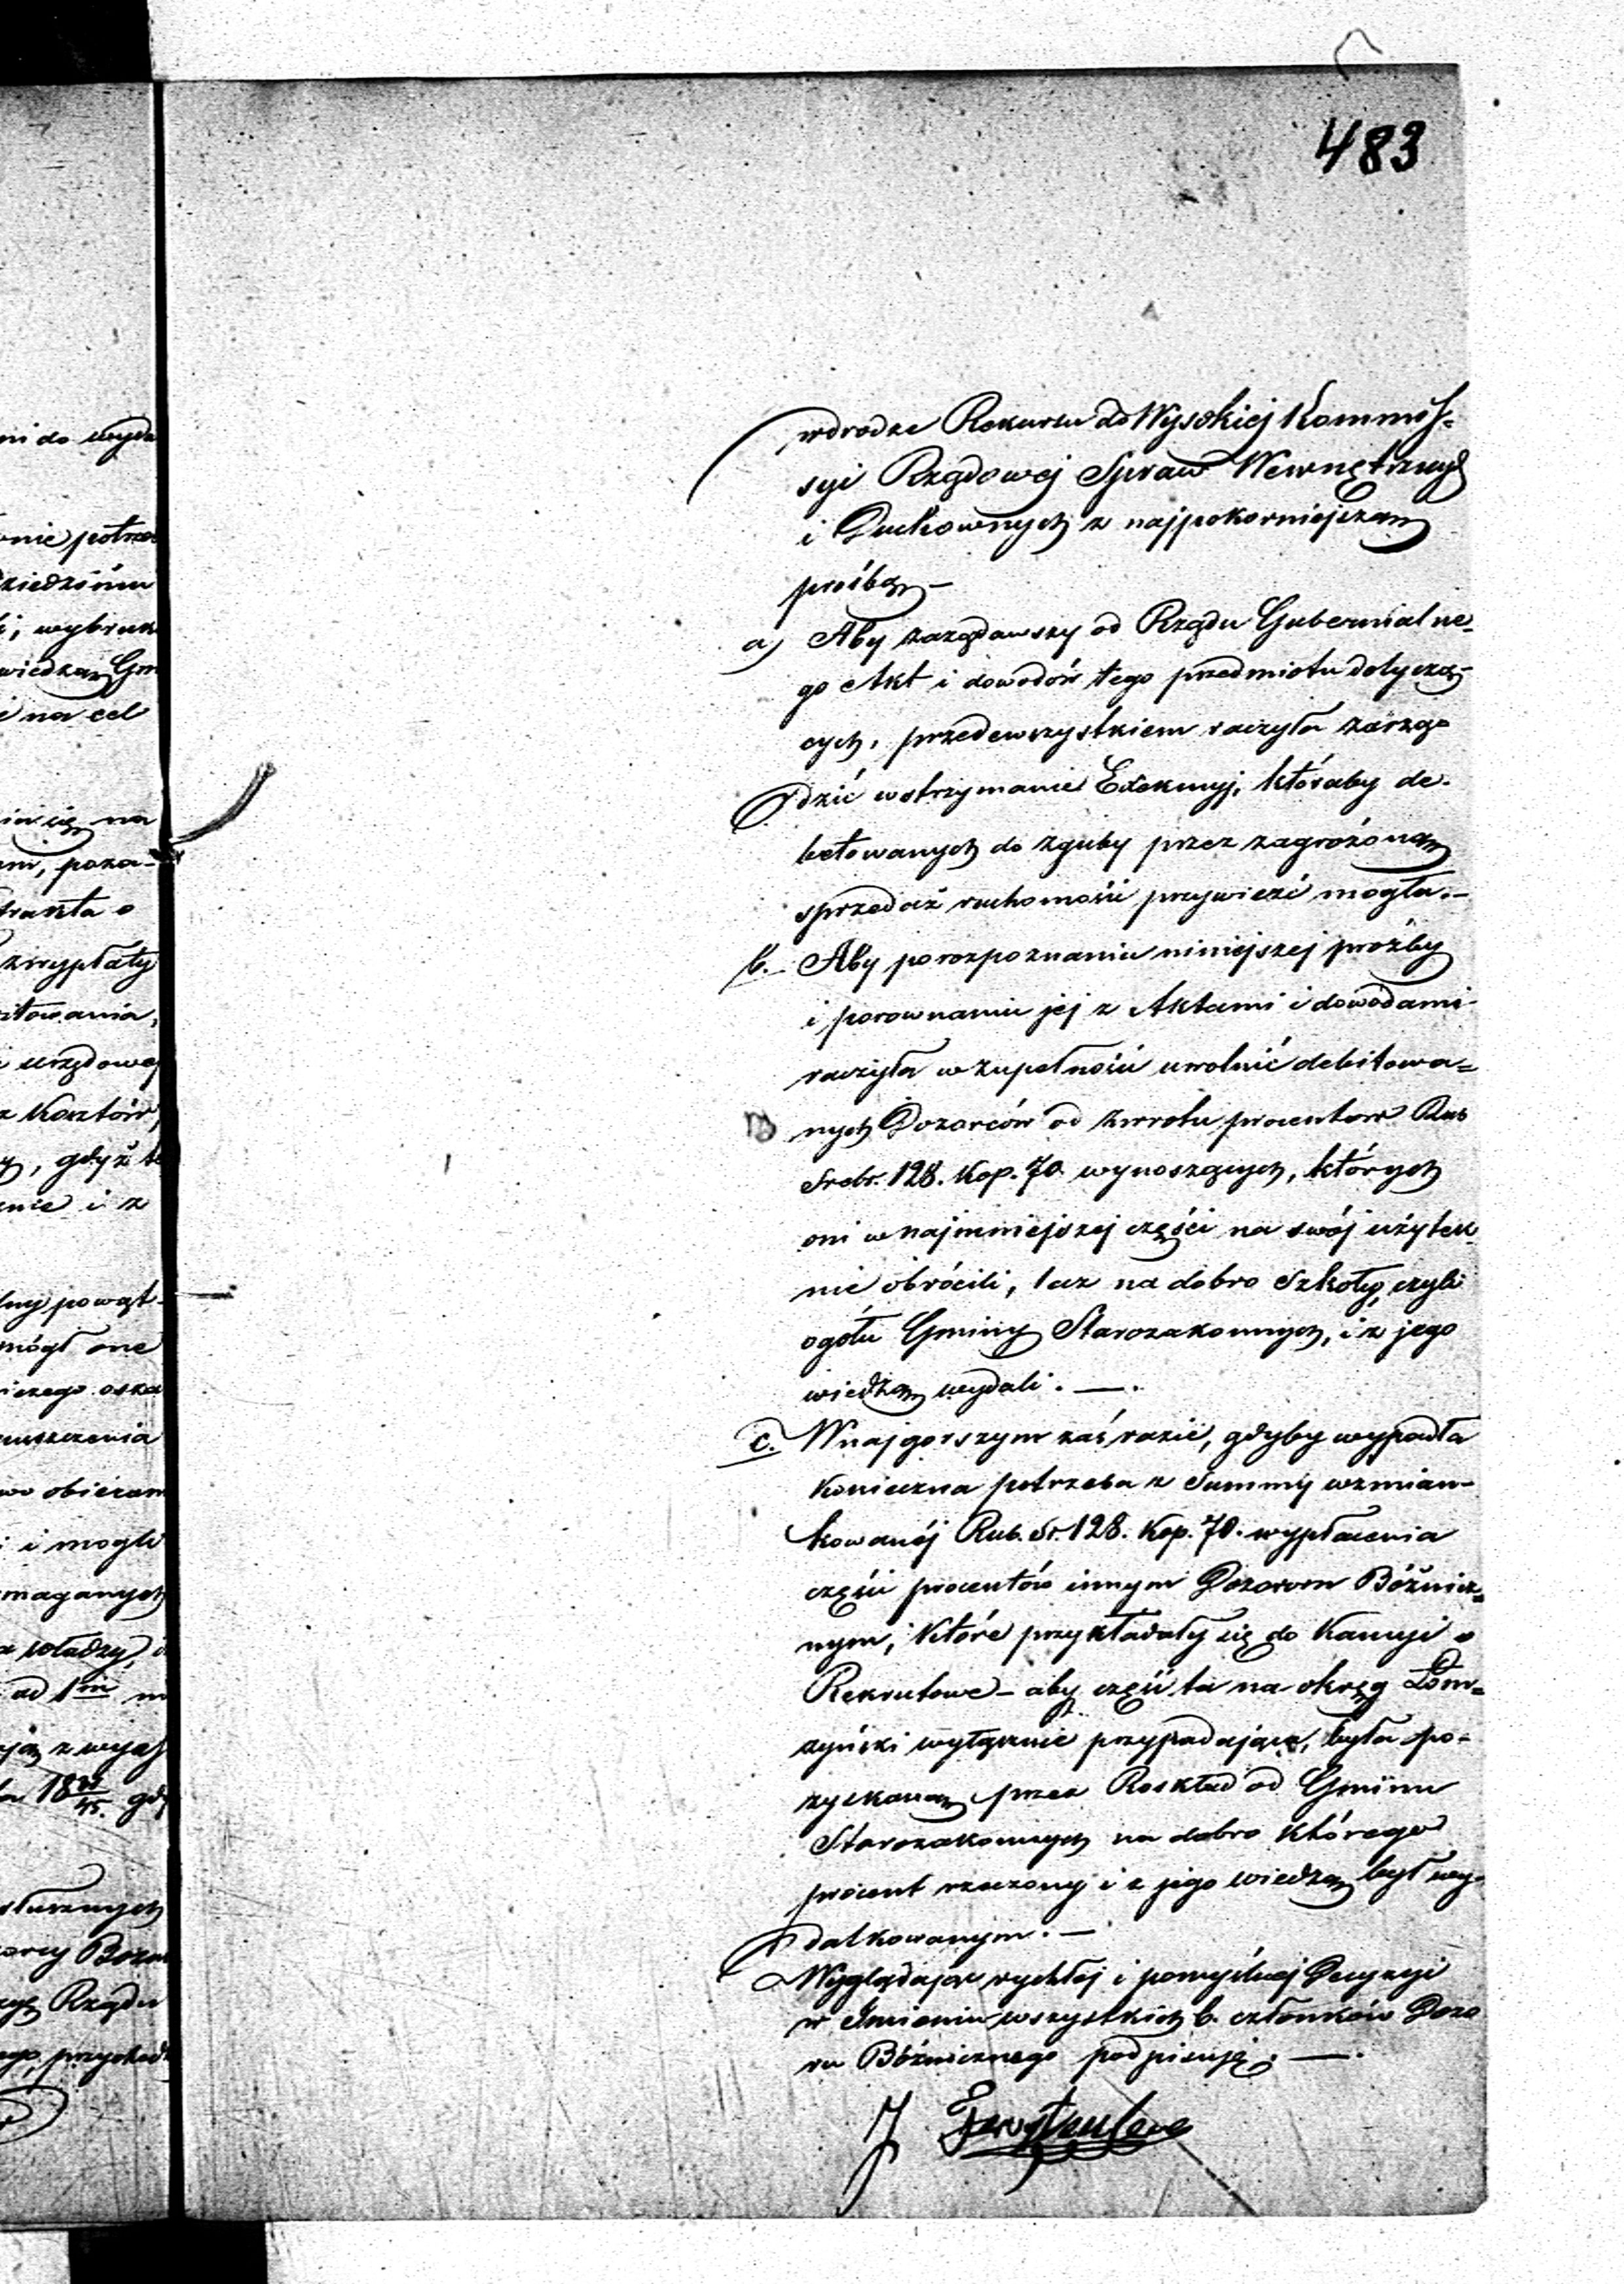 483
wdrodze Rekursu do Wysokiej Kommis=
syi Rządowej Spraw Wewnętrznych
i Duchownych z najpokorniejszą
prośbą —
a) Aby zażądawszy od Rządu Gubernialne-
go Akt i dowodów tego przedmiotu dotyczą-
cych, przedewszystkiem raczyła zarzą-
dzić wstrzymanie Exekucyj, któraby de-
betowanych do zguby przez zagrożoną
sprzedaż ruchomości przywieźć mogła. —
b. Aby po rozpoznaniu niniejszej prożby
i porownaniu jej z Aktami i dowodami
raczyła w zupełności uwolnić debitowa=
nych Dozorców od zwrotu procentow Rub
Srebr. 128. Kop. 70. wynoszących, których
oni w najmniejszej części na swój użytek
nie obrócili, lecz na dobro Szkoły, czyli
ogółu Gminy Starozakonnych, i z jego
wiedzą wydali. —.
c. W najgorszym zaś razie, gdyby wypadła
konieczna potrzeba z Summy wzmian-
kowanéj Rub. Sr. 128. Kop. 70. wypłacenia
części procentów innym Dozorom Bóżnicz=
nym, które przykładały się do Kaucyi
Rekrutowe — aby część ta na okręg Łom=
żyński wyłącznie przypadająca, była po-
zyskaną przez Roskład od Gminu
Starozakonnych na dobro którego
procent rzeczony i z jego wiedzą był wy-
datkowanym. —
Wyglądając rychłej i pomyślnej Decyzyi
w Imieniu wszystkich b. członków Dozo
ru Bóżnicznego podpisuję. —.
J